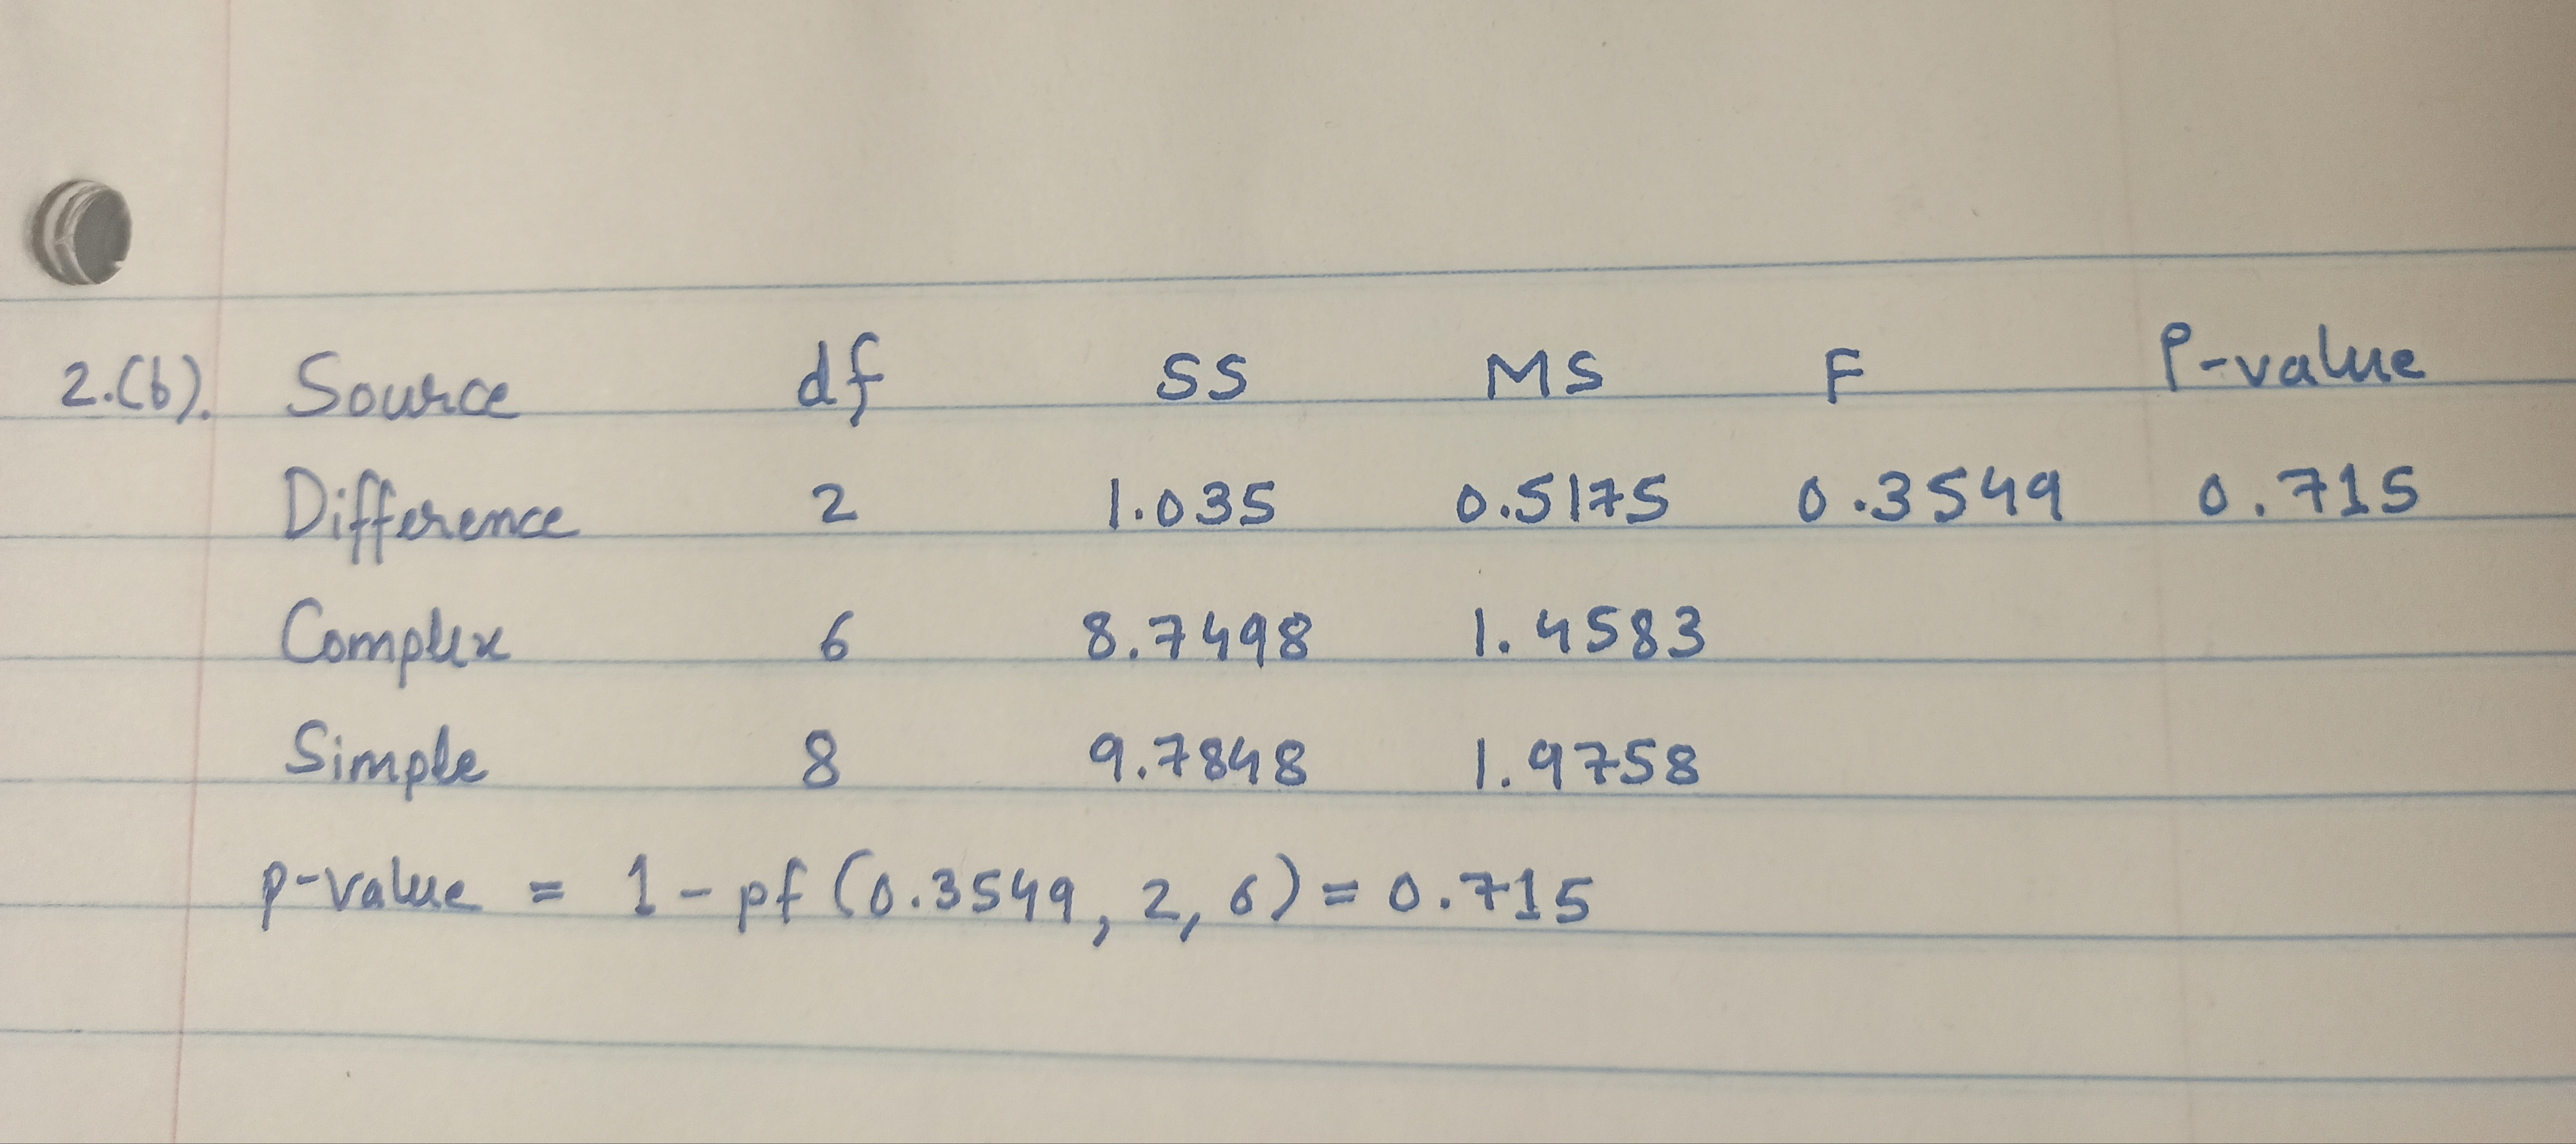 2.(b). Source df SS MS F P-value
Difference 2 1.035 0.5175 0.3549 0.715
Complex 6 8.7498 1.4583
Simple 8 9.7848 1.9758
p-value = 1 - pf (0.3549, 2, 6) = 0.715